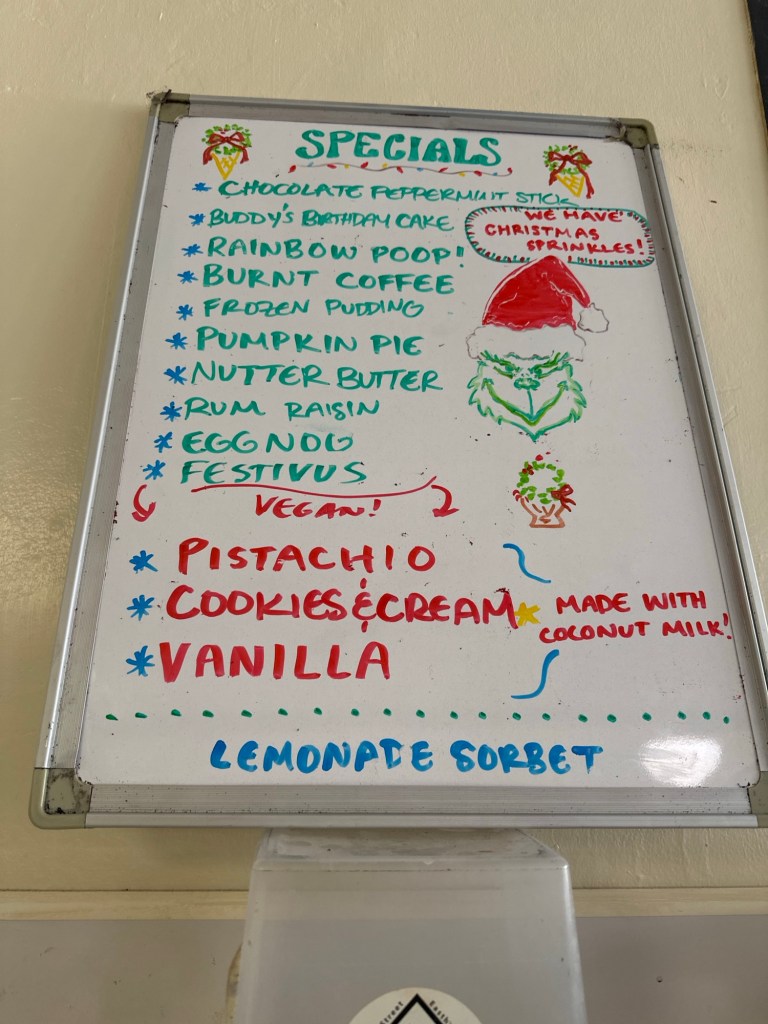 SPECIALS
* CHOCOLATE PEPPERMINT STICK
* BUDDY'S BIRTHDAY CAKE
WE HAVE
CHRISTMAS
SPRINKLES!
* RAINBOW POOP!
* BURNT COFFEE
* FROZEN PUDDING
* PUMPKIN PIE
* NUTTER BUTTER
* RUM RAISIN
* EGGNOG
* FESTIVUS
VEGAN!
* PISTACHIO
* COOKIES & CREAM
* MADE WITH
COCONUT MILK!
* VANILLA
LEMONADE SORBET